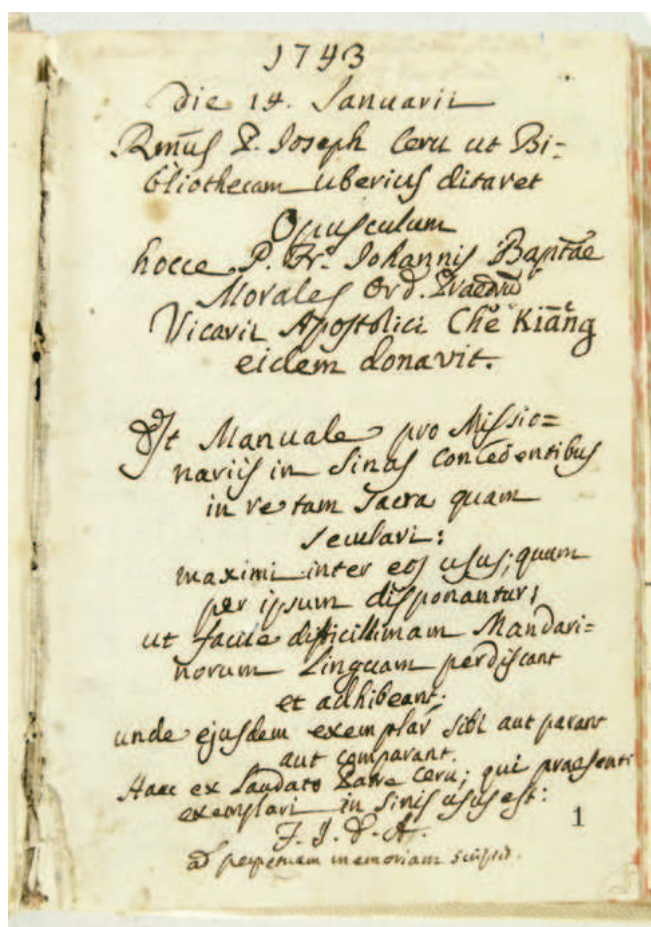 1743
Die 14. Januarii
Rm̃us P. Joseph Ceru ut Bi=
bliothecam uberius ditaret
Opusculum
hocce P. Fr. Johannis Baptãe
Morales Ord. Praed.
Vicarii Apostolici Chĕ Kiāng
eidem donavit.
Est Manuale pro Missio=
nariis in Sinas concedentibus
in re tam Sacra quam
seculari:
maximi inter eos usus; quum
per ipsum disponantur,
ut facile difficillimam Mandari=
norum Linguam perdiscant
et adhibeant;
unde ejusdem exemplar sibi aut parant
aut comparant.
Haec ex Laudato Patre Ceru; qui praesenti
exemplari in Sinis usus est:
F. J. D. A.
ad perpetuam memoriam scripsit.
1